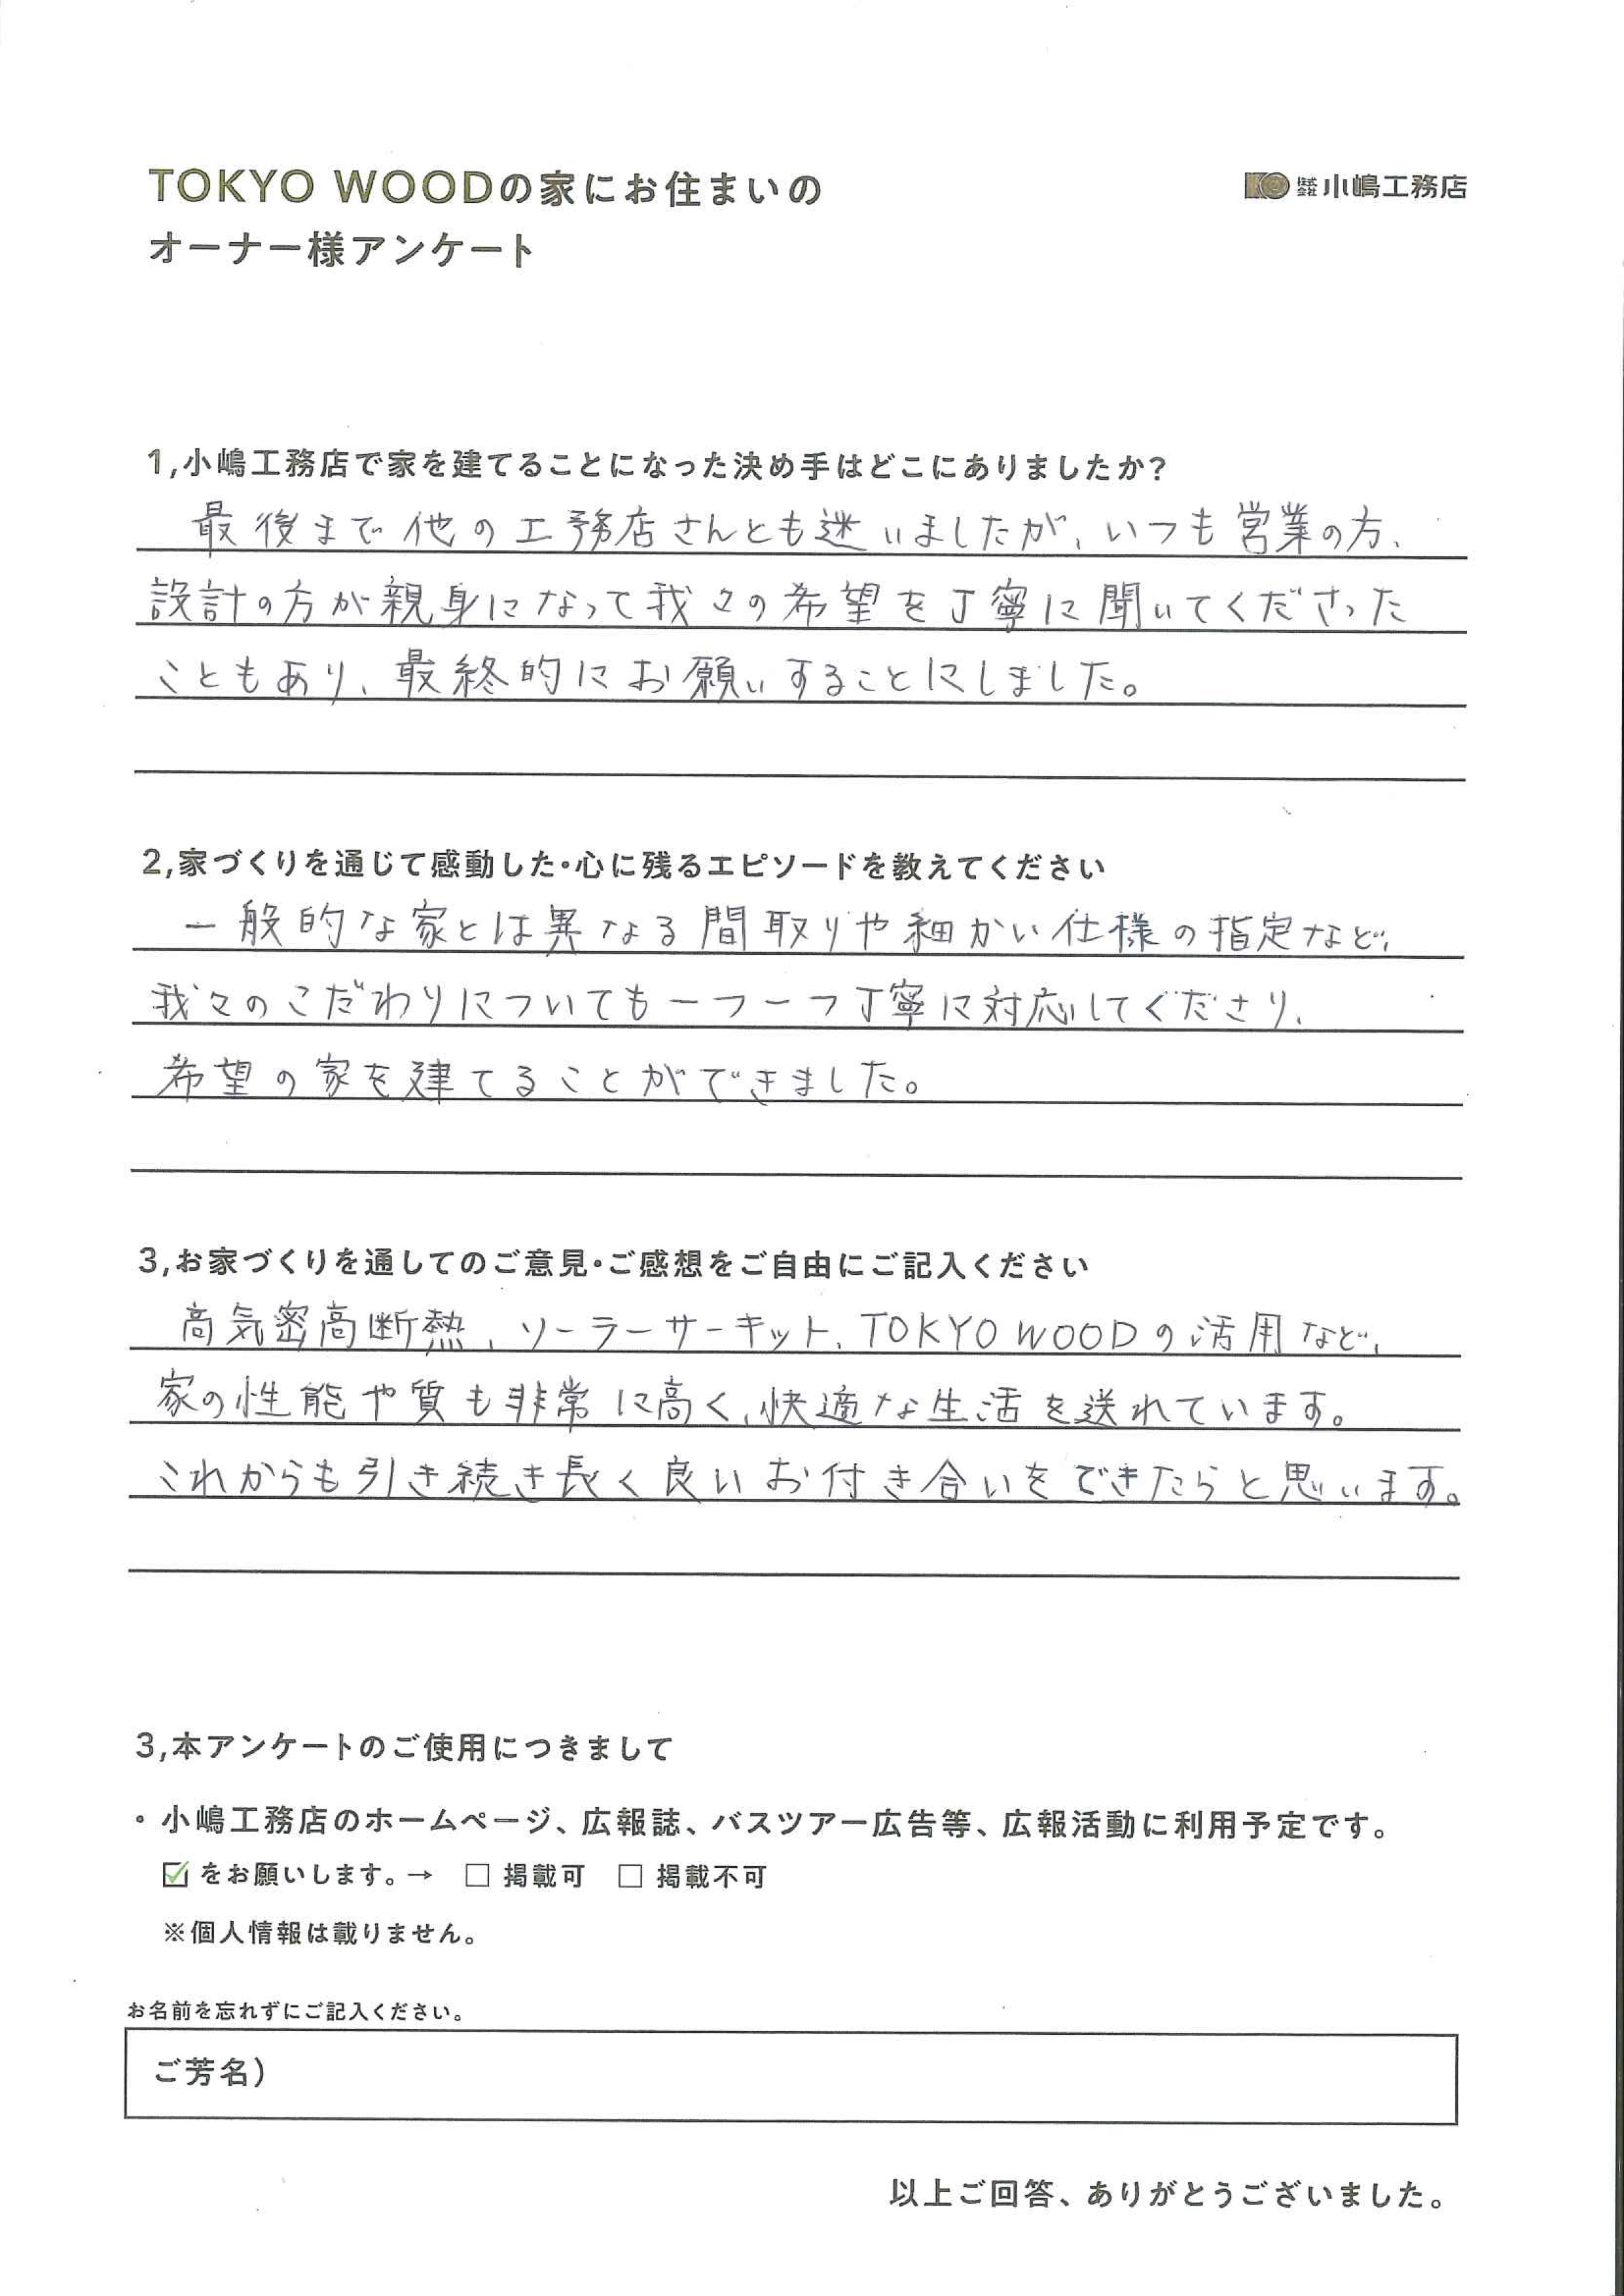 TOKYO WOODの家にお住まいの
オーナー様アンケート
KO 株式会社 小嶋工務店
1,小嶋工務店で家を建てることになった決め手はどこにありましたか?
最後まで他の工務店さんとも迷いましたが、いつも営業の方、
設計の方が親身になって我々の希望を丁寧に聞いてくださった
こともあり、最終的にお願いすることにしました。
2,家づくりを通じて感動した・心に残るエピソードを教えてください
一般的な家とは異なる間取りや細かい仕様の指定など、
我々のこだわりについても一つ一つ丁寧に対応してくださり、
希望の家を建てることができました。
3,お家づくりを通してのご意見・ご感想をご自由にご記入ください
高気密高断熱、ソーラーサーキット、TOKYO WOODの活用など、
家の性能や質も非常に高く、快適な生活を送れています。
これからも引き続き長く良いお付き合いをできたらと思います。
3,本アンケートのご使用につきまして
・小嶋工務店のホームページ、広報誌、バスツアー広告等、広報活動に利用予定です。
☑をお願いします。→ □ 掲載可 □ 掲載不可
※個人情報は載りません。
お名前を忘れずにご記入ください。
ご芳名)
以上ご回答、ありがとうございました。